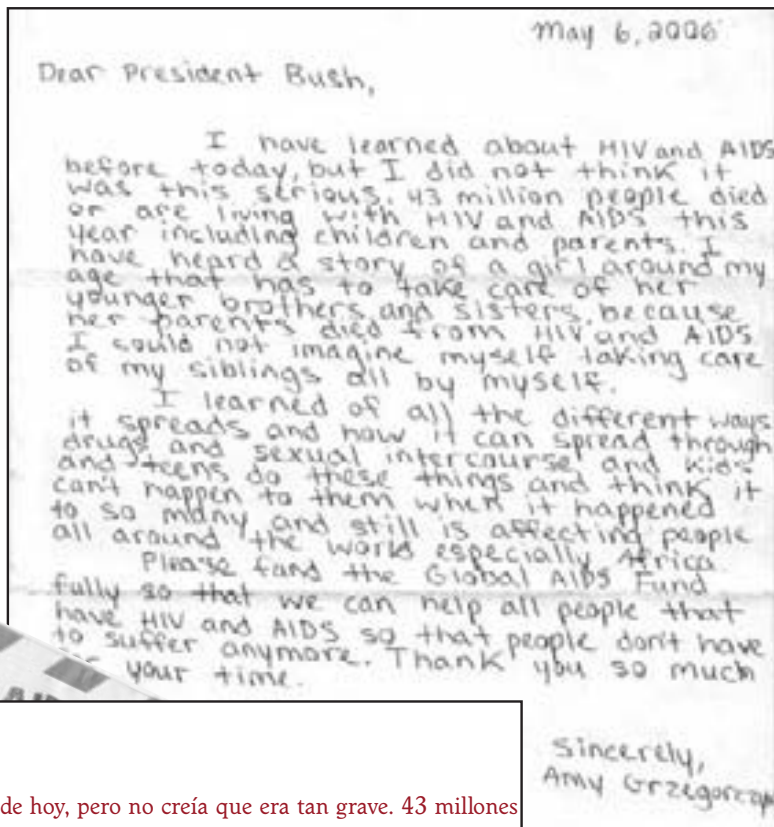 May 6, 2006
Dear President Bush,
I have learned about HIV and AIDS
before today, but I did not think it
was this serious. 43 million people died
or are living with HIV and AIDS this
year including children and parents. I
have heard a story of a girl around my
age that has to take care of her
younger brothers and sisters because
her parents died from HIV and AIDS.
I could not imagine myself taking care
of my siblings all by myself.
I learned of all the different ways
it spreads and how it can spread through
drugs and sexual intercourse and kids
and teens do these things and think it
can't happen to them when it happened
to so many and still is affecting people
all around the world especially Africa.
Please fund the Global AIDS Fund
fully so that we can help all people that
have HIV and AIDS so that people don't have
to suffer anymore. Thank you so much
your time.
Sincerely,
Amy
de hoy, pero no creía que era tan grave. 43 millones